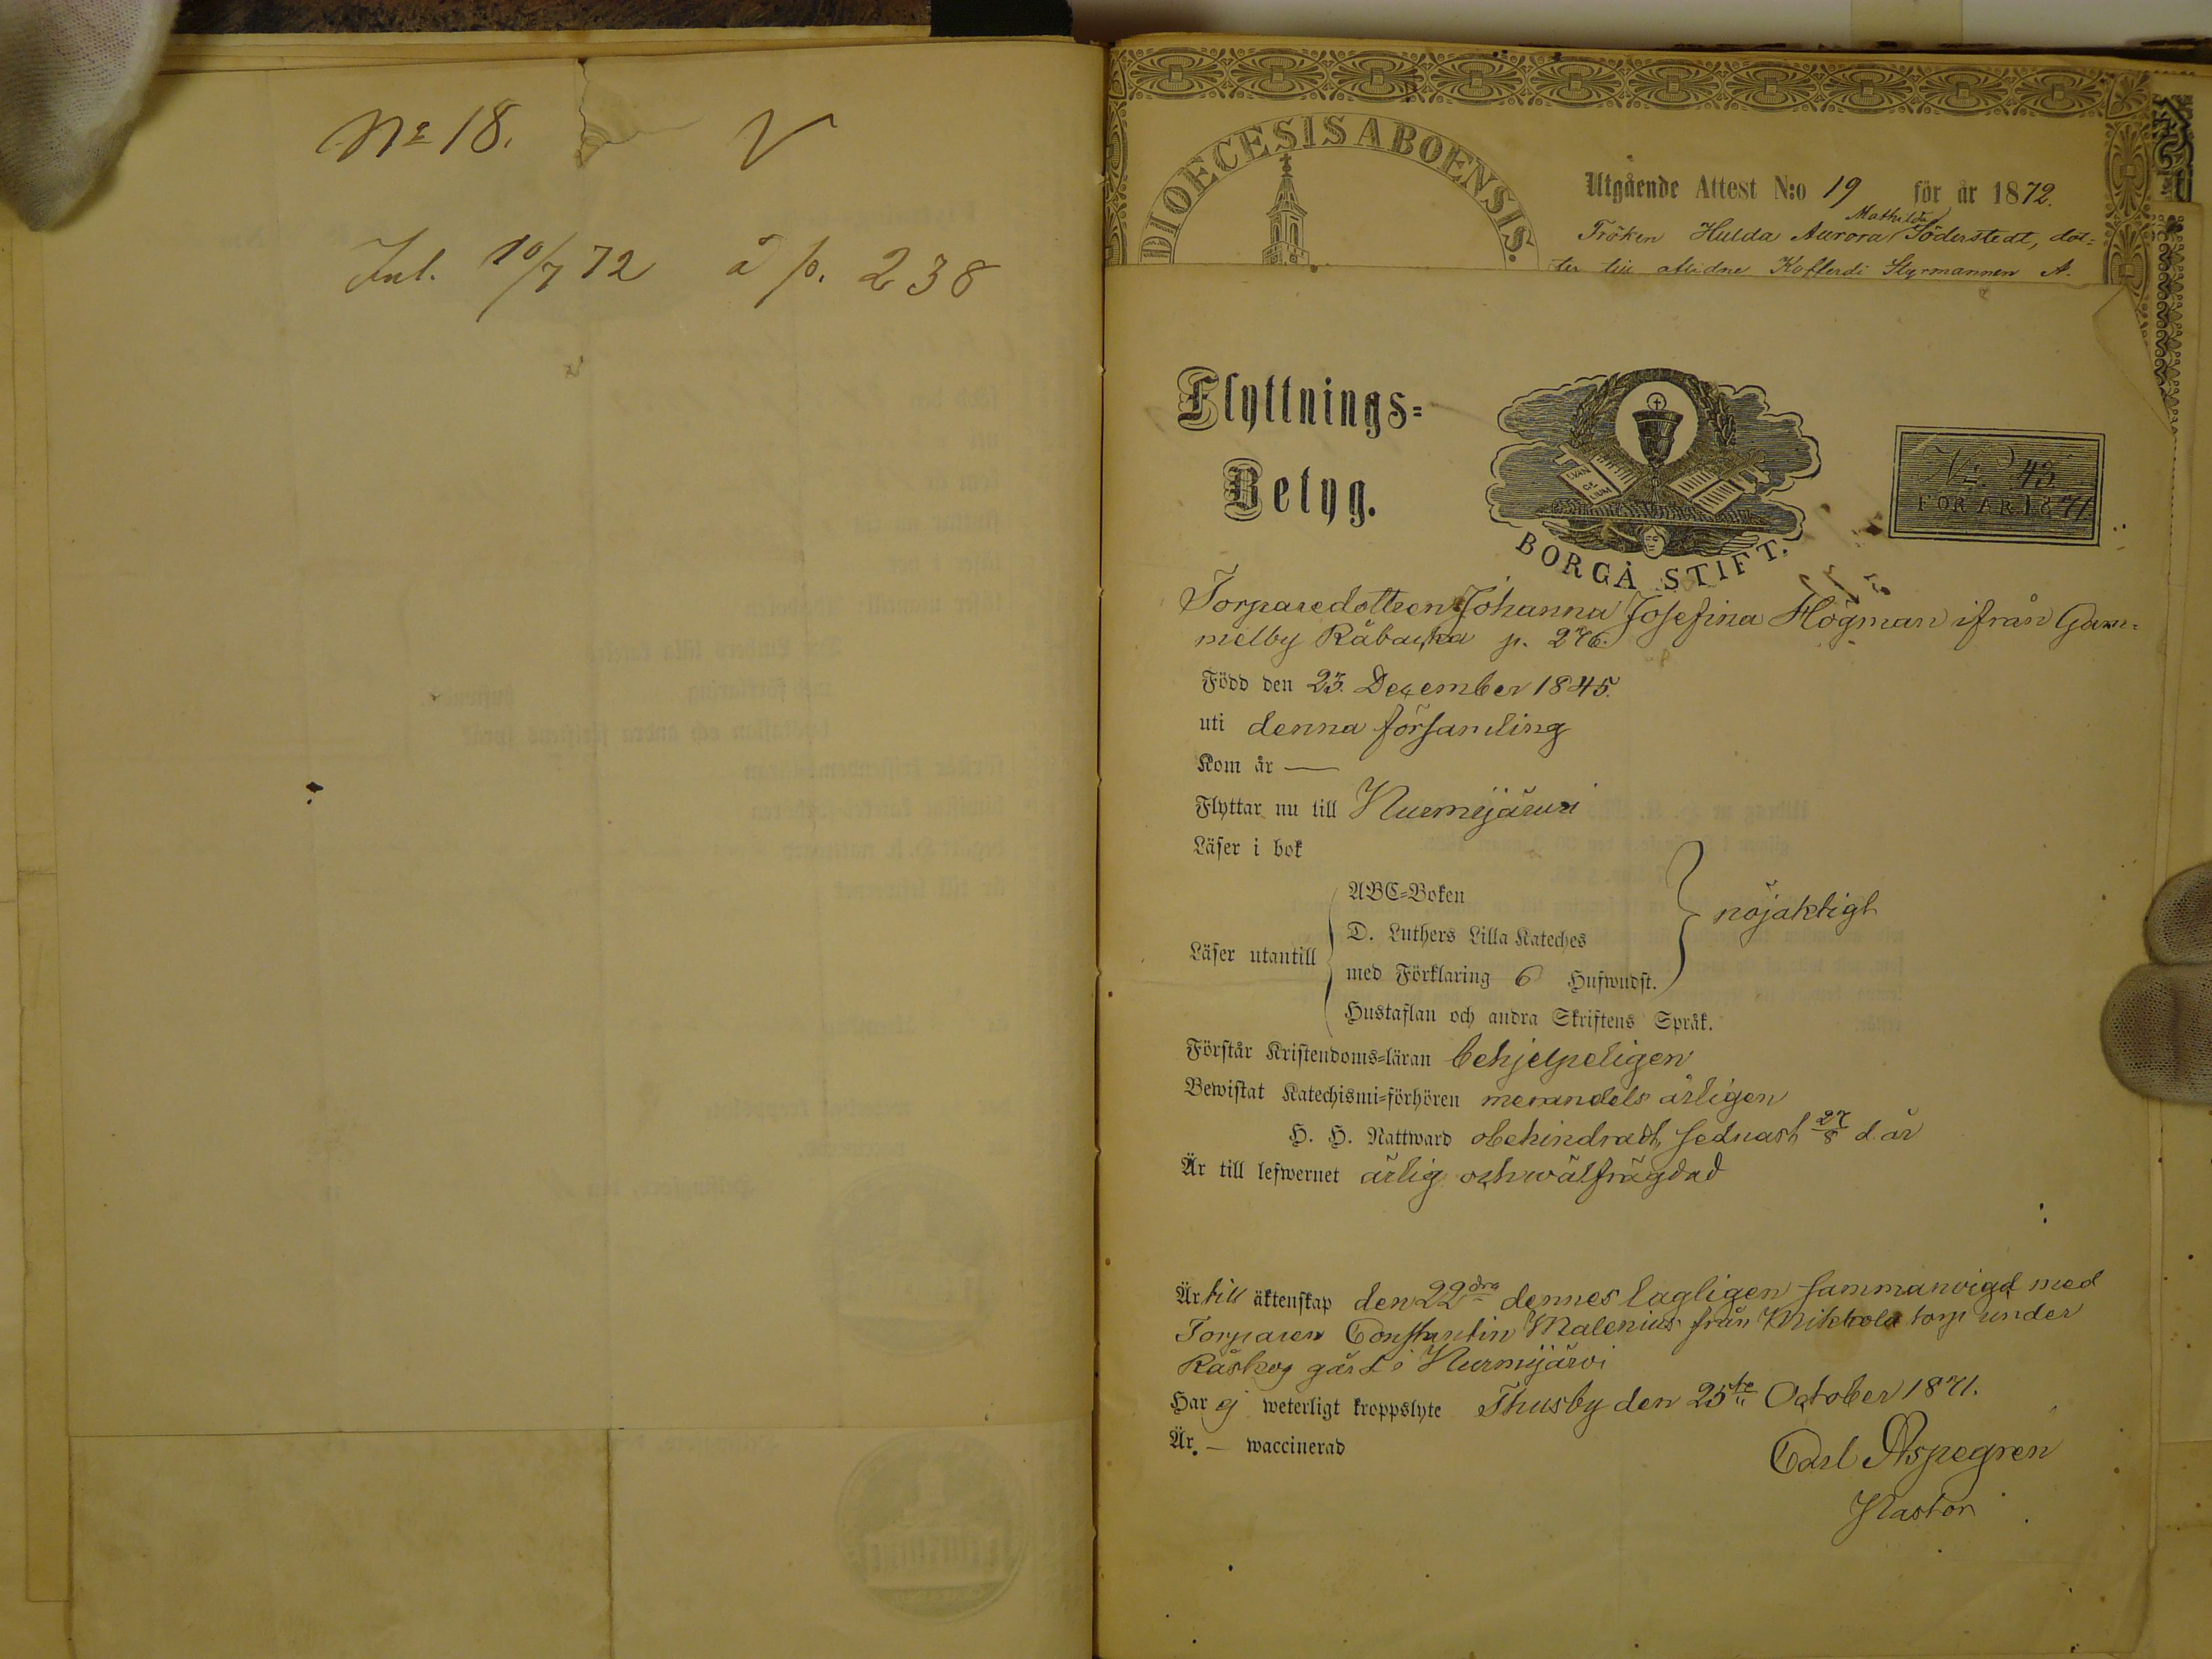 No 18. V
Inl. 10/7 72 å p. 238
DIOECESIS ABOENSIS.
Utgående Attest N:o 19 för år 1872.
Mathilda
Fröken Hulda Aurora Söderstedt, dot-
ter till aflidne Kofferdi Styrmannen A.
Flyttnings-
Betyg.
EVAN
GE
LIUM
BORGÅ STIFT.
No. 43.
FÖR ÅR 1871
Torparedottren Johanna Josefina Högman ifrån Gam-
melby Råbacka p. 276.
Född den 23. December 1845.
uti denna församling
Kom år —
Flyttar nu till Nurmijärvi
Läser i bok
ABC-Boken
nöjaktigt
D. Luthers Lilla Kateches
Läser utantill
med Förklaring 6 Hufwudst.
Hustaflan och andra Skriftens Språk.
Förstår Kristendoms-läran behjelpeligen
Bewistat Katechismi-förhören merendels årligen
H. H. Nattward obehindradt, sednast 27/8 d. år
Är till lefwernet ärlig och wälfrägdad
Är till äktenskap den 22dra dennes lagligen sammanvigd med
Torparen Constantin Malenius från torp under
Råskog gård i Nurmijärvi
Har ej weterligt kroppslyte Thusby den 25te October 1871.
Är — waccinerad
Carl Aspegren
Pastor